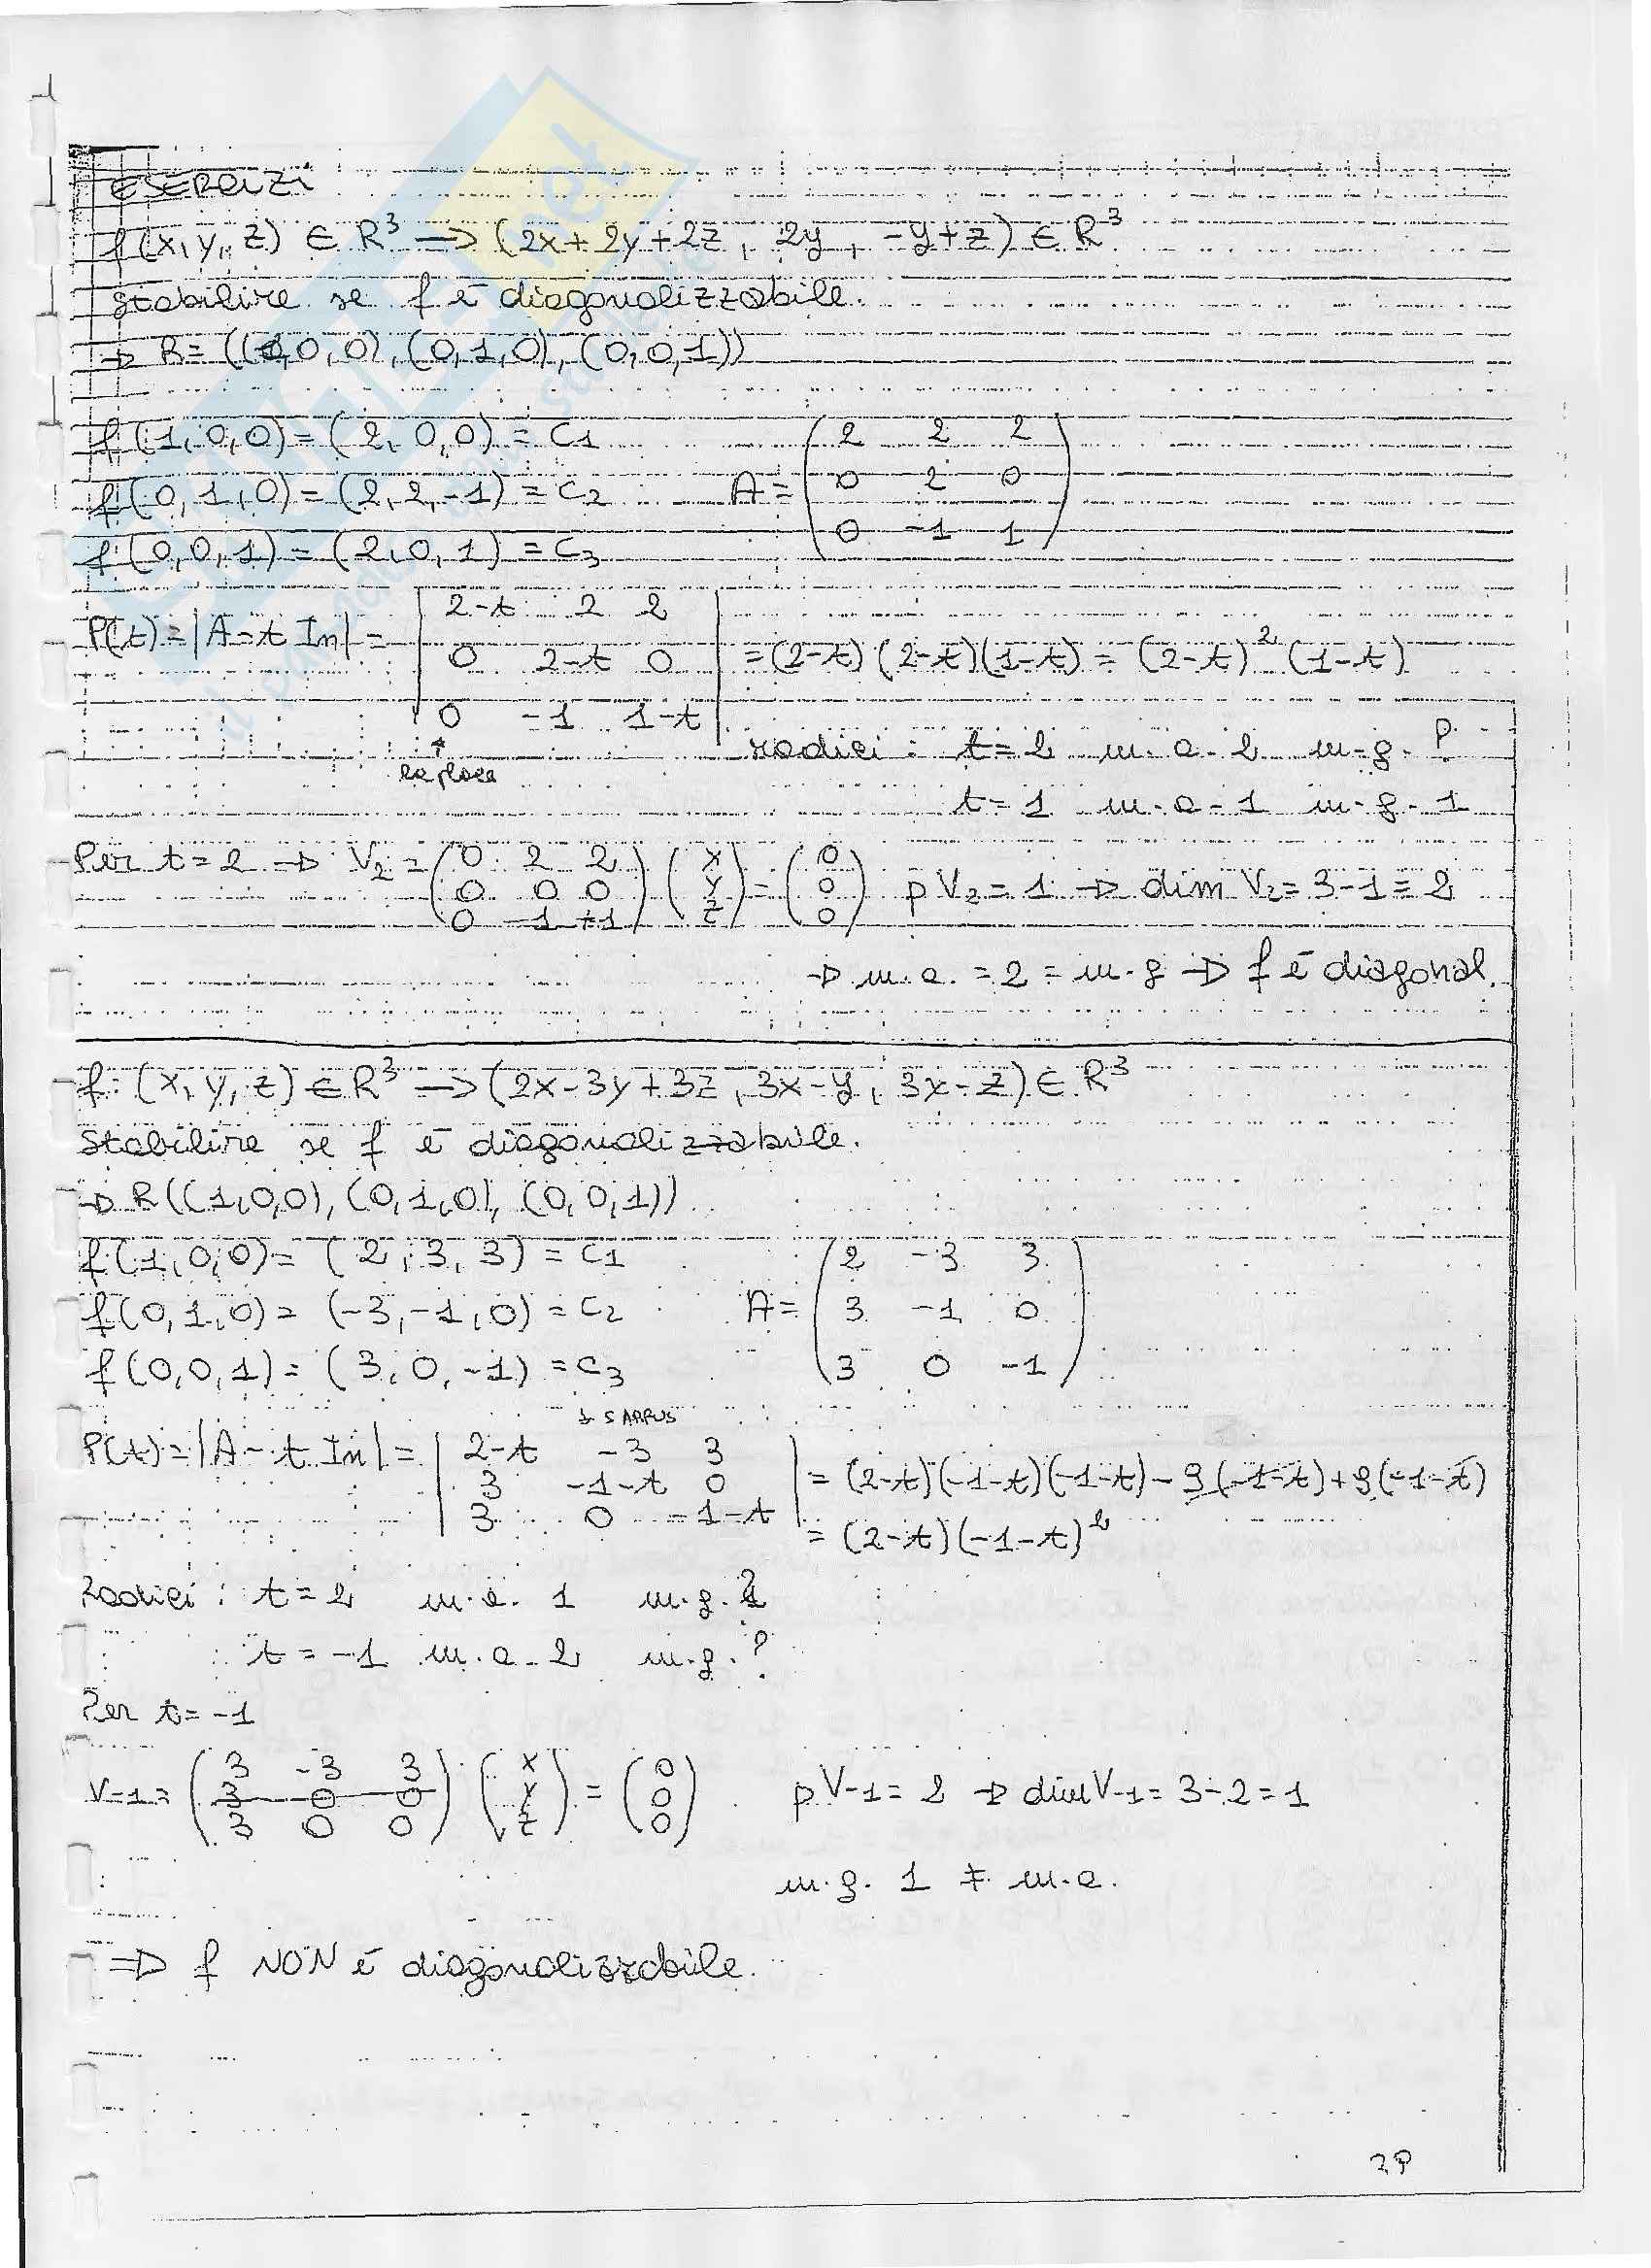 ESERCIZI
f(x,y,z) ∈ R³ → (2x+2y+2z, 2y, -y+z) ∈ R³
Stabilire se f è diagonalizzabile.
→ R= ((1,0,0), (0,1,0), (0,0,1))
f(1,0,0)=(2,0,0) = C1
f(0,1,0)=(2,2,-1) = C2
f(0,0,1)=(2,0,1) = C3
A= (2 2 2
0 2 0
0 -1 1)
P(t)=|A-t In|= |2-t 2 2
0 2-t 0
0 -1 1-t| =(2-t)(2-t)(1-t) = (2-t)² (1-t)
radici: t=2 m.a. 2 m.g. ?
t=1 m.a. 1 m.g. 1
Per t=2 → V2= (0 2 2
0 0 0
0 -1 +1) (x y z) = (0 0 0) ρV2=1 → dim V2=3-1=2
→ m.a. =2 = m.g → f è diagonal.
f: (x,y,z) ∈ R³ → (2x-3y+3z, 3x-y, 3x-z) ∈ R³
Stabilire se f è diagonalizzabile.
→ R((1,0,0), (0,1,0), (0,0,1))
f(1,0,0)= (2,3,3) = C1
f(0,1,0)= (-3,-1,0) = C2
f(0,0,1)= (3,0,-1) = C3
A= (2 -3 3
3 -1 0
3 0 -1)
SARRUS
P(t)=|A-t In|= |2-t -3 3
3 -1-t 0
3 0 -1-t| = (2-t)(-1-t)(-1-t)-9(-1-t)+9(-1-t)
= (2-t)(-1-t)²
Radici: t=2 m.a. 1 m.g. 1
t=-1 m.a. 2 m.g. ?
Per t=-1
V-1= (3 -3 3
3 0 0
3 0 0) (x y z) = (0 0 0) ρV-1= 2 → dim V-1=3-2=1
m.g. 1 ≠ m.a.
⇒ f NON è diagonalizzabile.